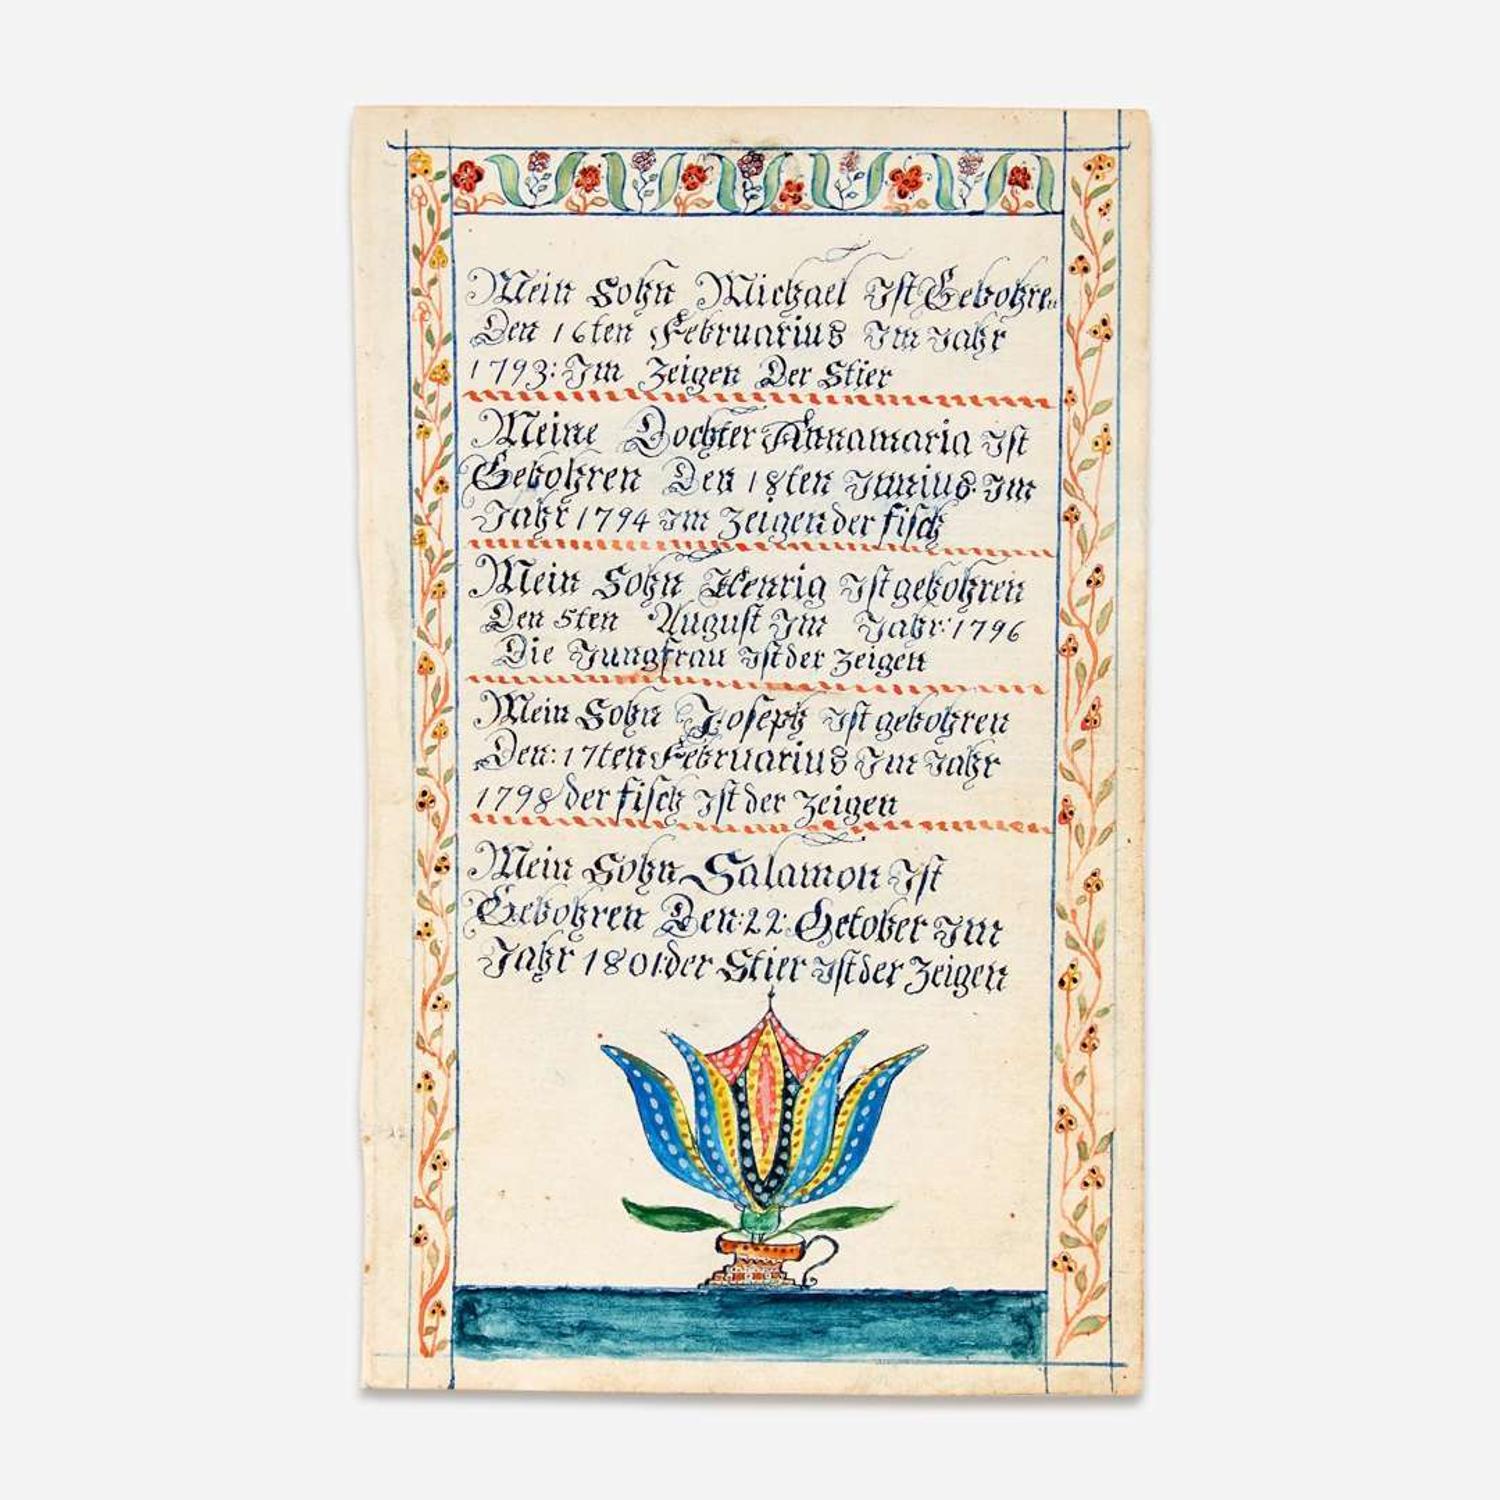 Mein Sohn Michael Ist Gebohren
Den 16ten Februarius Im Jahr
1793: Im Zeigen Der Stier
Meine Dochter Annamaria ist
Gebohren Den 18ten Iunius. Im
Jahr 1794 im Zeigen der fisch
Mein Sohn Henrig Ist gebohren
Den 5ten August Im Jahr: 1796
Die Jungfrau Ist der Zeigen
Mein Sohn Joseph ist gebohren
Den: 17ten Februarius Im Jahr
1798 der fisch Ist der Zeigen
Mein Sohn Salamon Ist
Gebohren Den: 22: October Im
Jahr 1801: der Stier Ist der Zeigen